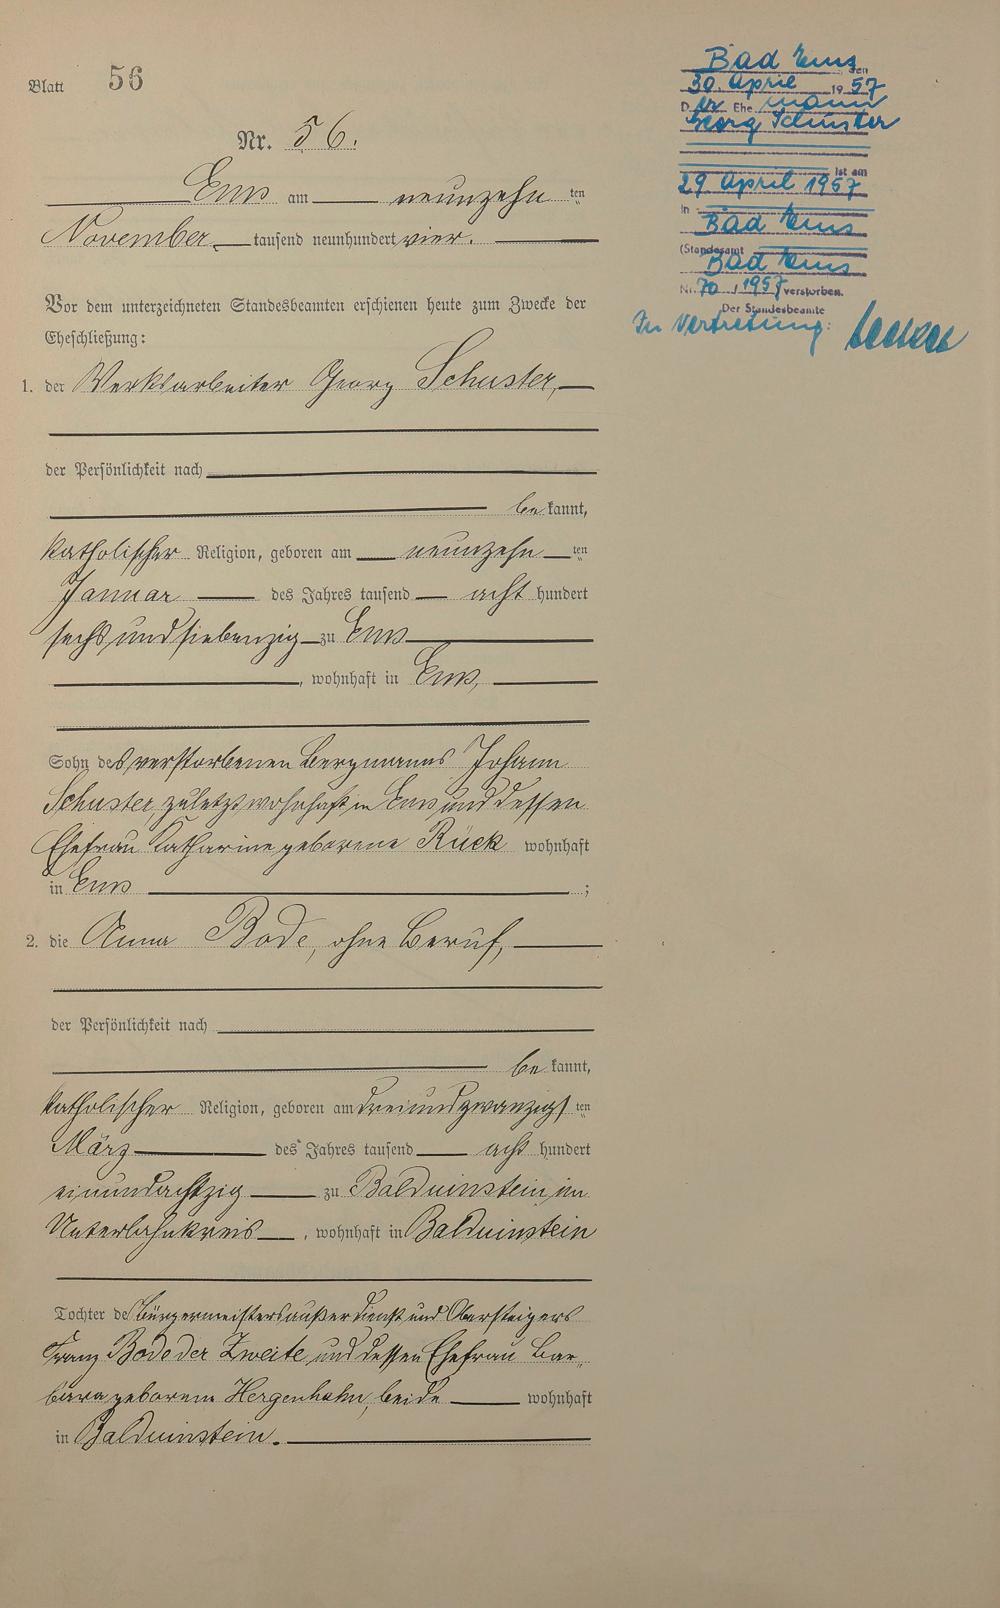 Blatt 56
Nr. 56.
Ems am neunzehnten
November tausend neunhundert vier.
Vor dem unterzeichneten Standesbeamten erschienen heute zum Zwecke der
Eheschließung:
1. der Werksarbeiter Georg Schuster,
der Persönlichkeit nach
bekannt,
katholischer Religion, geboren am neunzehnten
Januar des Jahres tausend acht hundert
sechsundsiebenzig zu Ems
, wohnhaft in Ems,
Sohn des verstorbenen Bergmanns Johann
Schuster, zuletzt wohnhaft in Ems, und dessen
Ehefrau Katharine geborene Rück wohnhaft
in Ems ;
2. die Anna Bode, ohne Beruf,
der Persönlichkeit nach
bekannt,
katholischer Religion, geboren am dreiundzwanzigsten
März des Jahres tausend acht hundert
einundachtzig zu Balduinstein im
Unterlahnkreis, wohnhaft in Balduinstein
Tochter des Bürgermeisters außer Dienst und Obersteigers
Franz Bode der Zweite, und dessen Ehefrau Bar-
bara geborene Hergenhahn, beide wohnhaft
in Balduinstein.
Bad Ems, den
30. April 1957
Der Ehemann
Georg Schuster
ist am
29 April 1957
in
Bad Ems
(Standesamt
Bad Ems
Nr. 70 / 1957 verstorben.
Der Standesbeamte
In Vertretung: